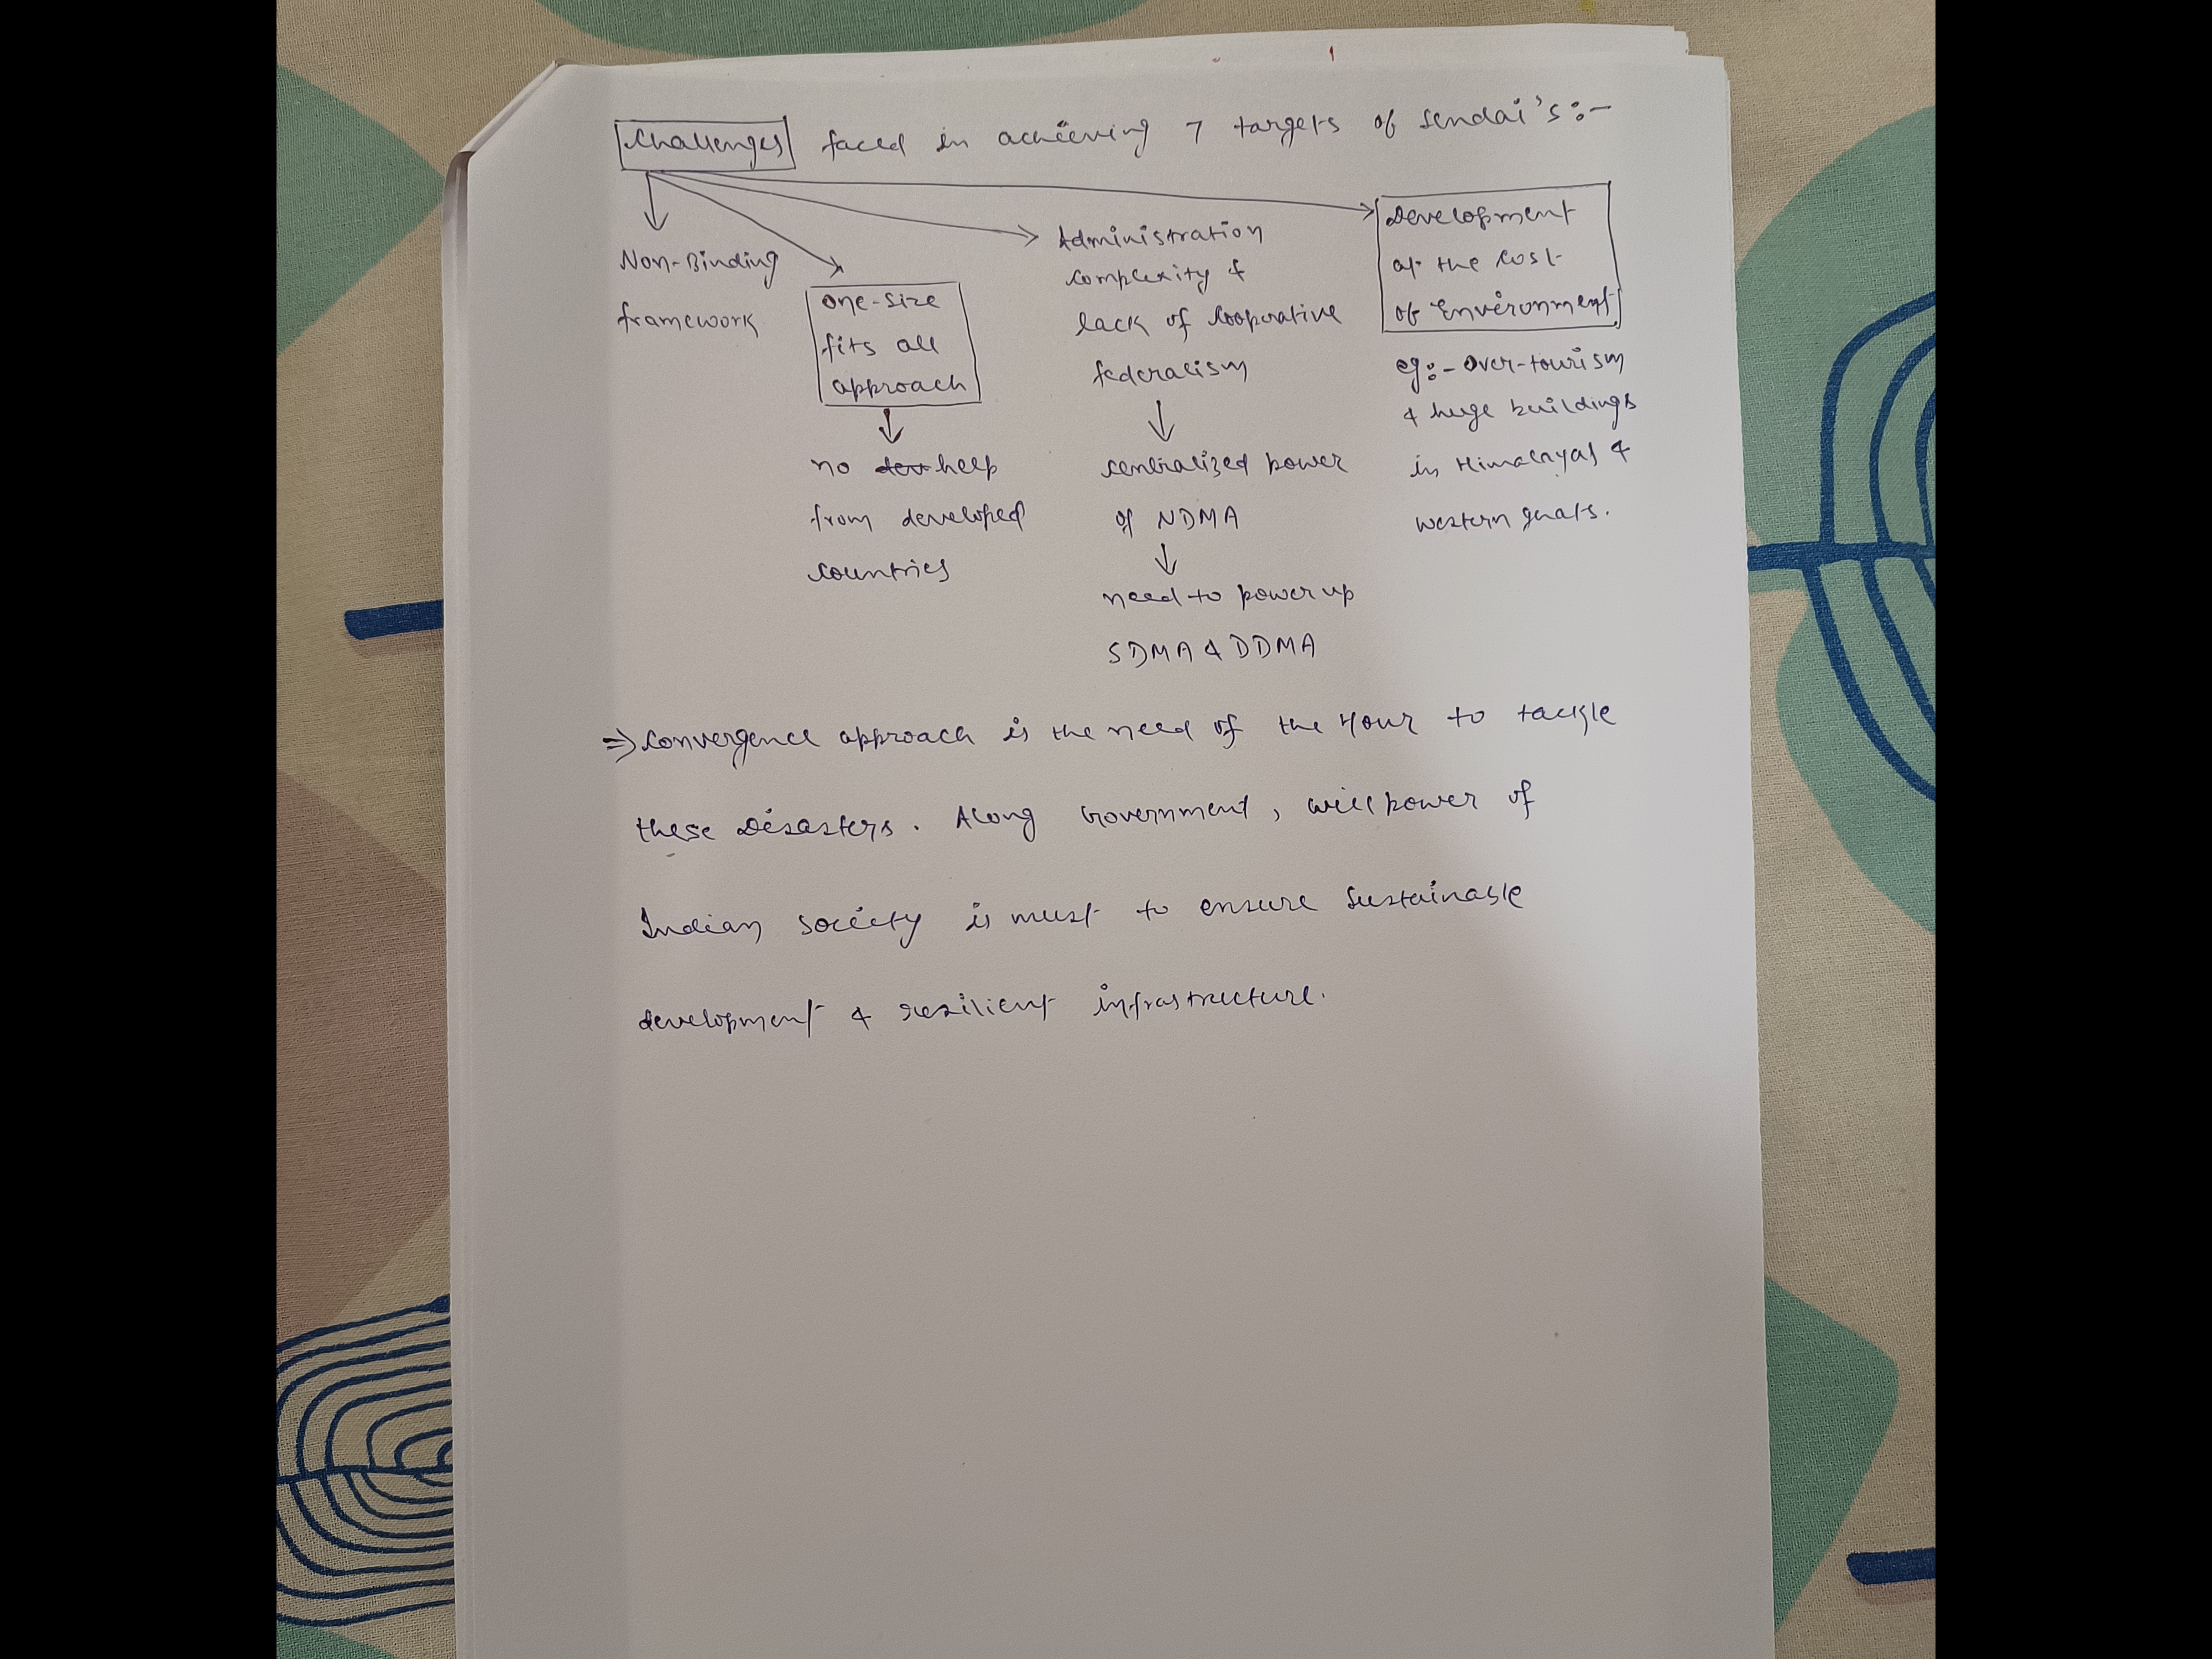 Challenges faced in achieving 7 targets of Sendai's:-
Non-Binding
framework
one-size
fits all
approach
no help
from developed
countries
Administration
complexity &
lack of Cooperative
federalism
centralized power
of NDMA
need to power up
SDMA & DDMA
Development
at the cost
of Environment
eg:- Over-tourism
& huge buildings
in Himalayas &
western ghats.
⇒ Convergence approach is the need of the Hour to tackle
these Disasters. Along Government, will power of
Indian society is must to ensure sustainable
development & resilient infrastructure.